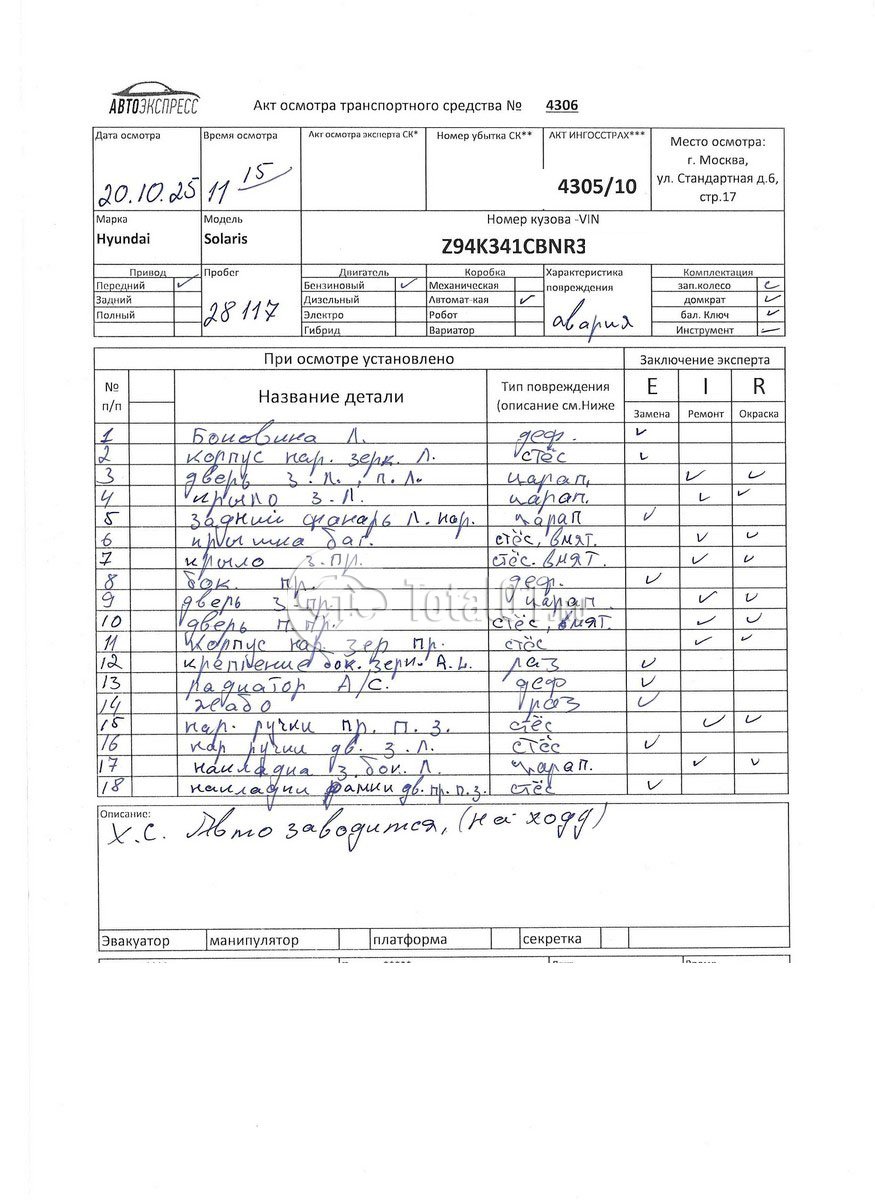 АВТОЭКСПРЕСС
Акт осмотра транспортного средства № 4306
Дата осмотра Время осмотра Акт осмотра эксперта СК* Номер убытка СК** АКТ ИНГОССТРАХ*** Место осмотра:
г. Москва,
ул. Стандартная д.6,
стр.17
20.10.25 11 15 4305/10
Марка Модель Номер кузова -VIN
Hyundai Solaris Z94K341CBNR3
Привод Пробег Двигатель Коробка Характеристика повреждения Комплектация
Передний ✓ 28117 Бензиновый ✓ Механическая авария зап.колесо ✓
Задний Дизельный Автомат-кая ✓ домкрат ✓
Полный Электро Робот бал. Ключ ✓
Гибрид Вариатор Инструмент —
При осмотре установлено Заключение эксперта
№ п/п Название детали Тип повреждения (описание см.Ниже E I R
Замена Ремонт Окраска
1 Боковина Л. деф. ✓
2 корпус нар. зерк. Л. стёс ✓
3 дверь З.Л., П.Л. царап. ✓ ✓
4 крыло З.Л. царап. ✓ ✓
5 задний фонарь Л. нар. царап ✓
6 крышка баг. стёс, вмят. ✓ ✓
7 крыло З.ПР. стёс. вмят. ✓ ✓
8 бок. пр. деф. ✓
9 дверь З.пр. царап ✓ ✓
10 дверь П.пр. стёс, вмят. ✓ ✓
11 Корпус нар. зер пр. стёс ✓ ✓
12 крепление бок. зерк. раз ✓
13 радиатор А/С. деф ✓
14 жабо раз ✓
15 нар. ручки пр. П. З. стёс ✓ ✓
16 нар ручки дв. З.Л. стёс ✓
17 накладка З. бок. Л. царап. ✓ ✓
18 накладки рамки дв. пр. п.з. стёс ✓
Описание:
Х.С. Авто заводится, (на ходу)
Эвакуатор манипулятор платформа секретка
Total01.ru